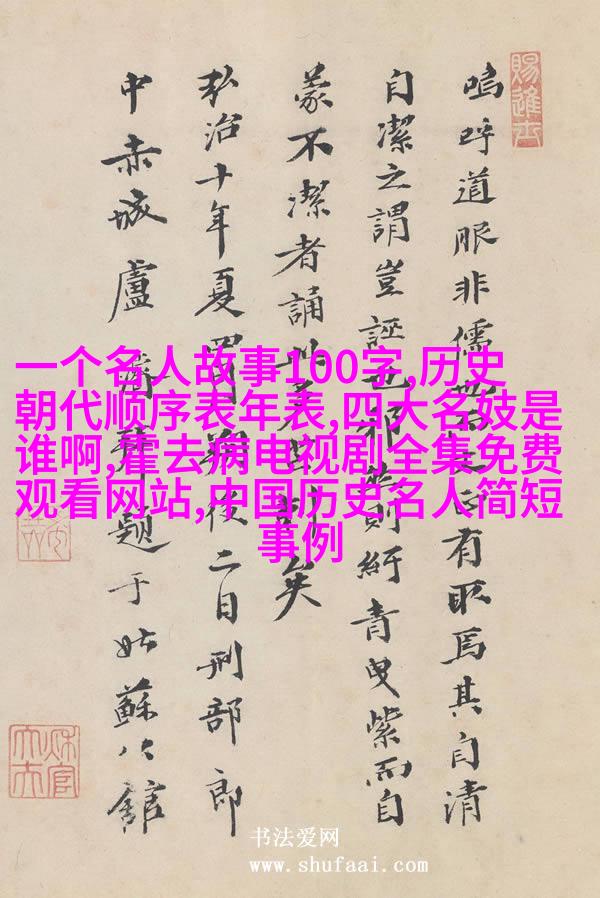 賜進士
嗚呼道服非儒也有取焉其自清
自潔之謂豈誣也邪則紆青曳紫而自
蒙不潔者誦矣
弘治十年夏後二日刑部郎
中赤城盧題于姑蘇公館
一个名人故事100字,历史
朝代顺序表年表,四大名妓是
谁啊,霍去病电视剧全集免费
观看网站,中国历史名人简短
事例
书法爱网
www.shufaai.com